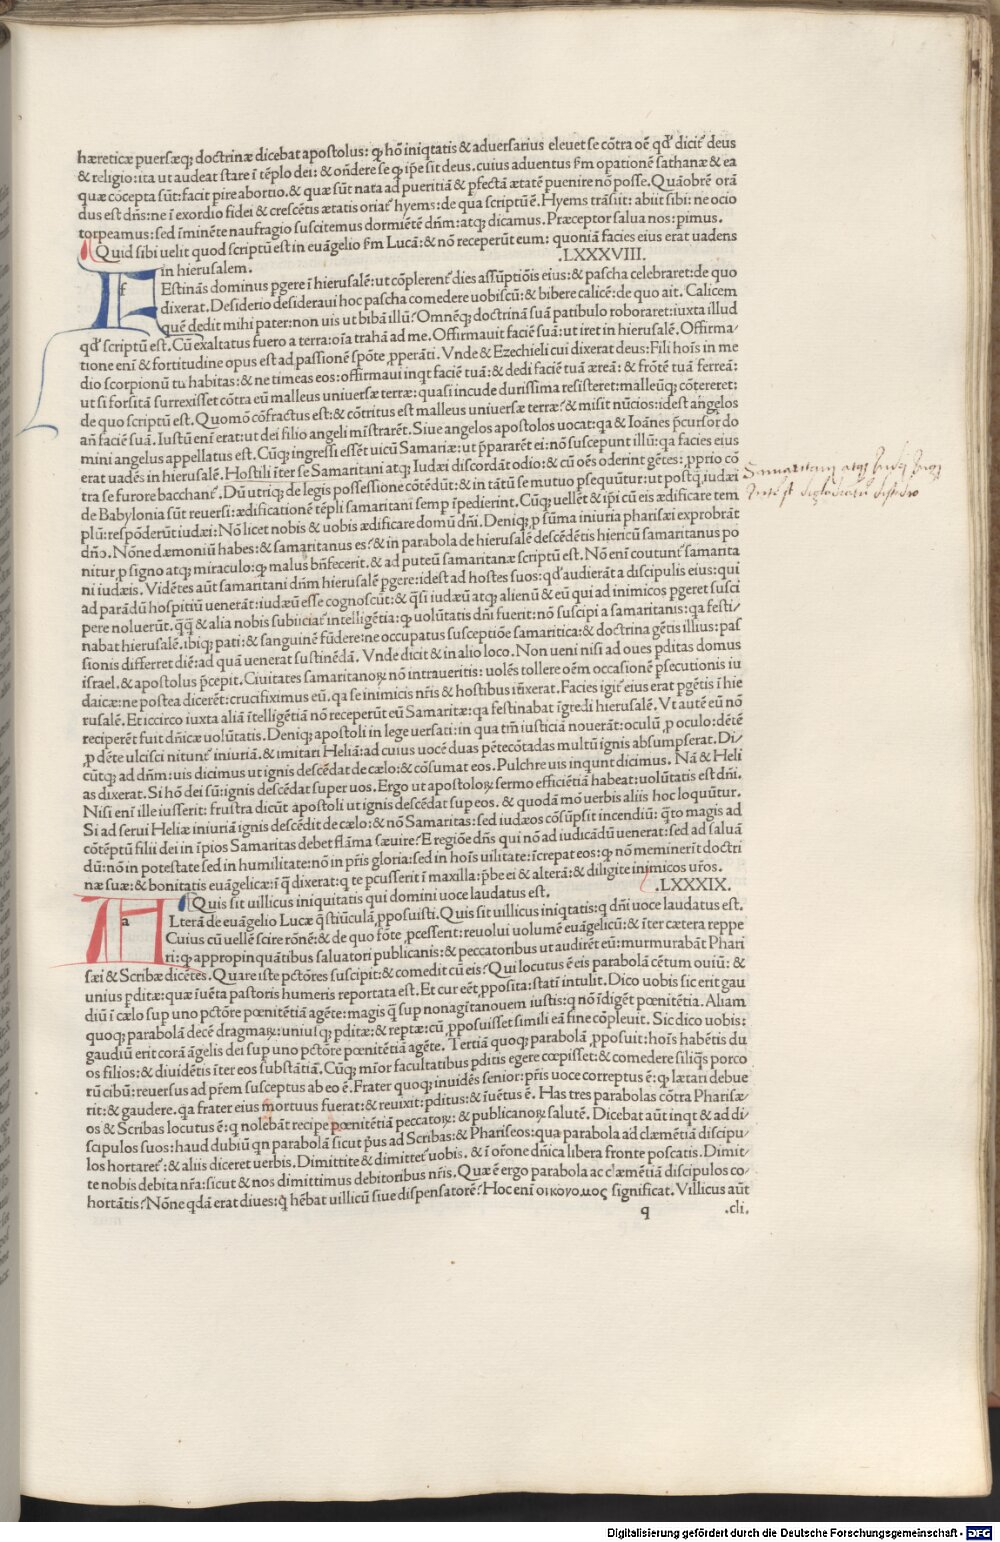 hæreticæ puersæq; doctrinæ dicebat apostolus: ꝙ hō iniqtatis & aduersarius eleuet se cōtra oē qđ dicit᷑ deus
& religio: ita ut audeat stare ī tēplo dei: & oñdere se ꝙ ip̄e sit deus. cuius aduentus s̄m opationē sathanæ & ea
quæ cōcepta sūt: facit pire abortio. & quæ sūt nata ad pueritiā & pfectā ætatē puenire nō posse. Quāobrē orā
dus est dn̄s: ne ī exordio fidei & crescētis ætatis oriat᷑ hyems: de qua scriptū ē. Hyems trāsiit: abiit sibi: ne ocio
torpeamus: sed īminēte naufragio suscitemus dormiētē dn̄m: atq; dicamus. Præceptor salua nos: pimus.
Quid sibi uelit quod scriptū est in euāgelio s̄m Lucā: & nō receperūt eum: quoniā facies eius erat uadens
in hierusalem. .LXXXVIII.
f Estinās dominus pgere ī hierusalē: ut cōplerent᷑ dies assūptiōis eius: & pascha celebraret: de quo
dixerat. Desiderio desideraui hoc pascha comedere uobiscū: & bibere calicē: de quo ait. Calicem
quē dedit mihi pater: non uis ut bibā illū? Omnēq; doctrinā suā patibulo roboraret: iuxta illud
qđ scriptū est. Cū exaltatus fuero a terra: oīa trahā ad me. Offirmauit faciē suā: ut iret in hierusalē. Offirma/
tione enī & fortitudine opus est ad passionē spōte ꝓperāti. Vnde & Ezechieli cui dixerat deus: Fili hoīs in me
dio scorpionū tu habitas: & ne timeas eos: offirmaui inqt faciē tuā: & dedi faciē tuā æreā: & frōtē tuā ferreā:
ut si forsitā surrexisset cōtra eū malleus uniuersæ terræ: quasi incude durissima resisteret: malleūq; cōtereret:
de quo scriptū est. Quomō cōfractus est: & cōtritus est malleus uniuersæ terræ? & misit nūcios: idest angelos
añ faciē suā. Iustū enī erat: ut dei filio angeli mīstrarēt. Siue angelos apostolos uocat: qa & Ioānes p̄cursor do
mini angelus appellatus est. Cūq; ingressi essēt uicū Samariæ: ut p̄pararēt ei: nō susceperunt illū: qa facies eius
erat uadēs in hierusalē. Hostili īter se Samaritani atq; Iudæi discordāt odio: & cū oēs oderint gētes: ꝓprio cō
tra se furore bacchant᷑. Dū utriq; de legis possessione cōtēdūt: & in tātū se mutuo psequūtur: ut postq̄ iudæi
de Babylonia sūt reuersi: ædificationē tēpli samaritani semp īpedierint. Cūq; uellēt & ip̄i cū eis ædificare tem
plū: respōderūt iudæi: Nō licet nobis & uobis ædificare domū dn̄i. Deniq; ꝓ sūma iniuria pharisæi exprobrāt
dn̄o. Nōne dæmoniū habes: & samaritanus es? & in parabola de hierusalē descēdētis hiericū samaritanus po
nitur ꝓ signo atq; miraculo: ꝙ malus bn̄fecerit. & ad puteū samaritanæ scriptū est. Nō enī coutunt᷑ samarita
ni iudæis. Vidētes aūt samaritani dn̄m hierusalē pgere: idest ad hostes suos: qđ audierāt a discipulis eius: qui
ad parādū hospitiū uenerāt: iudæū esse cognoscūt: & q̄si iudæū atq; alienū & eū qui ad inimicos pgeret susci
pere noluerūt. q̄q̄ & alia nobis subiiciat᷑ intelligētia: ꝙ uolūtatis dn̄i fuerit: nō suscipi a samaritanis: qa festi/
nabat hierusalē. ibiq; pati: & sanguinē fūdere: ne occupatus susceptiōe samaritica: & doctrina gētis illius: pas
sionis differret diē: ad quā uenerat sustinēdā. Vnde dicit & in alio loco. Non ueni nisi ad oues pditas domus
israel. & apostolus p̄cepit. Ciuitates samaritanoꝝ nō intraueritis: uolēs tollere oēm occasionē psecutionis iu
daicæ: ne postea dicerēt: crucifiximus eū. qa se inimicis nr̄is & hostibus iūxerat. Facies igit᷑ eius erat pgētis ī hie
rusalē. Et iccirco iuxta aliā ītelligētiā nō receperūt eū Samaritæ: qa festinabat īgredi hierusalē. Vt autē eū nō
reciperēt fuit dn̄icæ uolūtatis. Deniq; apostoli in lege uersati: in qua tm̄ iusticiā nouerāt: oculū ꝓ oculo: dētē
ꝓ dēte ulcisci nitunt᷑ iniuriā. & imitari Heliā: ad cuius uocē duas pētecōtadas multū ignis absumpserat. Di/
cūtq; ad dn̄m: uis dicimus ut ignis descēdat de cælo: & cōsumat eos. Pulchre uis inqunt dicimus. Nā & Heli
as dixerat. Si hō dei sū: ignis descēdat super uos. Ergo ut apostoloꝝ sermo efficiētiā habeat: uolūtatis est dn̄i.
Nisi enī ille iusserit: frustra dicūt apostoli ut ignis descēdat sup eos. & quodā mō uerbis aliis hoc loquūtur.
Si ad serui Heliæ iniuriā ignis descēdit de cælo: & nō Samaritas: sed iudæos cōsūpsit incendiū: q̄to magis ad
cōtēptū filii dei in īpios Samaritas debet flāma sæuire? E regiōe dn̄s qui nō ad iudicādū uenerat: sed ad saluā
dū: nō in potestate sed in humilitate: nō in pr̄is gloria: sed in hoīs uilitate: īcrepat eos: ꝙ nō meminerīt doctri
næ suæ: & bonitatis euāgelicæ: ī q̄ dixerat: q te pcusserit ī maxilla: p̄be ei & alterā: & diligite inimicos ur̄os.
Quis sit uillicus iniquitatis qui domini uoce laudatus est. .LXXXIX.
a Lterā de euāgelio Lucæ q̄stiūculā ꝓposuisti. Quis sit uillicus iniqtatis: q dn̄i uoce laudatus est.
Cuius cū uellē scire rōnē: & de quo fōte ꝓcessent: reuolui uolumē euāgelicū: & īter cætera reppe
ri: ꝙ appropinquātibus saluatori publicanis: & peccatoribus ut audirēt eū: murmurabāt Phari
sæi & Scribæ dicētes. Quare iste pctōres suscipit: & comedit cū eis? Qui locutus ē eis parabolā cētum ouiū: &
unius pditæ: quæ īuēta pastoris humeris reportata est. Et cur eēt ꝓposita: statī intulit. Dico uobis sic erit gau
diū ī cælo sup uno pctōre pœnitētiā agēte: magis q̄ sup nonagītanouem iustis: q nō īdigēt pœnitētia. Aliam
quoq; parabolā decē dragmaꝝ: uniusq; pditæ: & reptæ: cū ꝓposuisset simili eā fine cōpleuit. Sic dico uobis:
gaudiū erit corā āgelis dei sup uno pctōre pœnitētiā agēte. Tertiā quoq; parabolā ꝓposuit: hoīs habētis du
os filios: & diuidētis īter eos substātiā. Cūq; mīor facultatibus pditis egere cœpisset: & comedere siliq̄s porco
rū cibū: reuersus ad pr̄em susceptus ab eo ē. Frater quoq; inuidēs senior: pr̄is uoce correptus ē: ꝙ lætari debue
rit: & gaudere. qa frater eius mortuus fuerat: & reuixit: pditus: & īuētus ē. Has tres parabolas cōtra Pharisæ/
os & Scribas locutus ē: q nolebāt recipe pœnitētiā peccatoꝝ: & publicanoꝝ salutē. Dicebat aūt inqt & ad di/
scipulos suos: haud dubiū qn parabolā sicut p̄us ad Scribas: & Phariseos: qua parabola ad clæmētiā discipu/
los hortaret᷑: & aliis diceret uerbis. Dimittite & dimittet᷑ uobis. & ī or̄one dn̄ica libera fronte poscatis. Dimit/
te nobis debita nr̄a: sicut & nos dimittimus debitoribus nr̄is. Quæ ē ergo parabola ac clæmētiā discipulos co/
hortātis? Nōne qdā erat diues: q̄ hēbat uillicū siue dispensatorē? Hoc enī οικονομος significat. Villicus aūt
q .cli.
Samaritani atq; Iudei
Digitalisierung gefördert durch die Deutsche Forschungsgemeinschaft - DFG